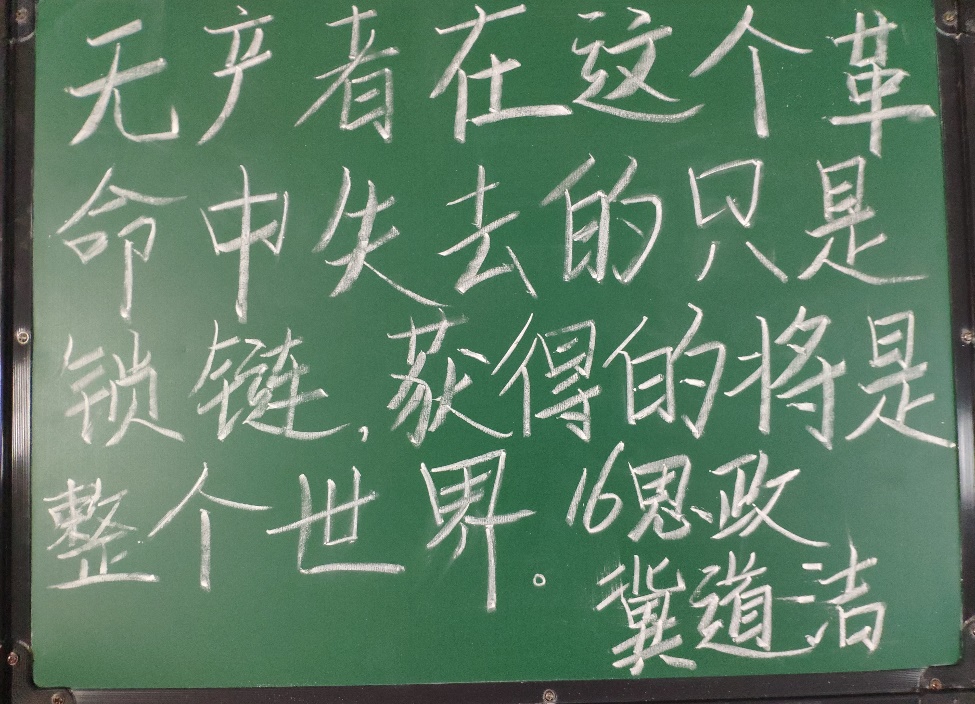 无产者在这个革
命中失去的只是
锁链,获得的将是
整个世界。16思政
冀道洁